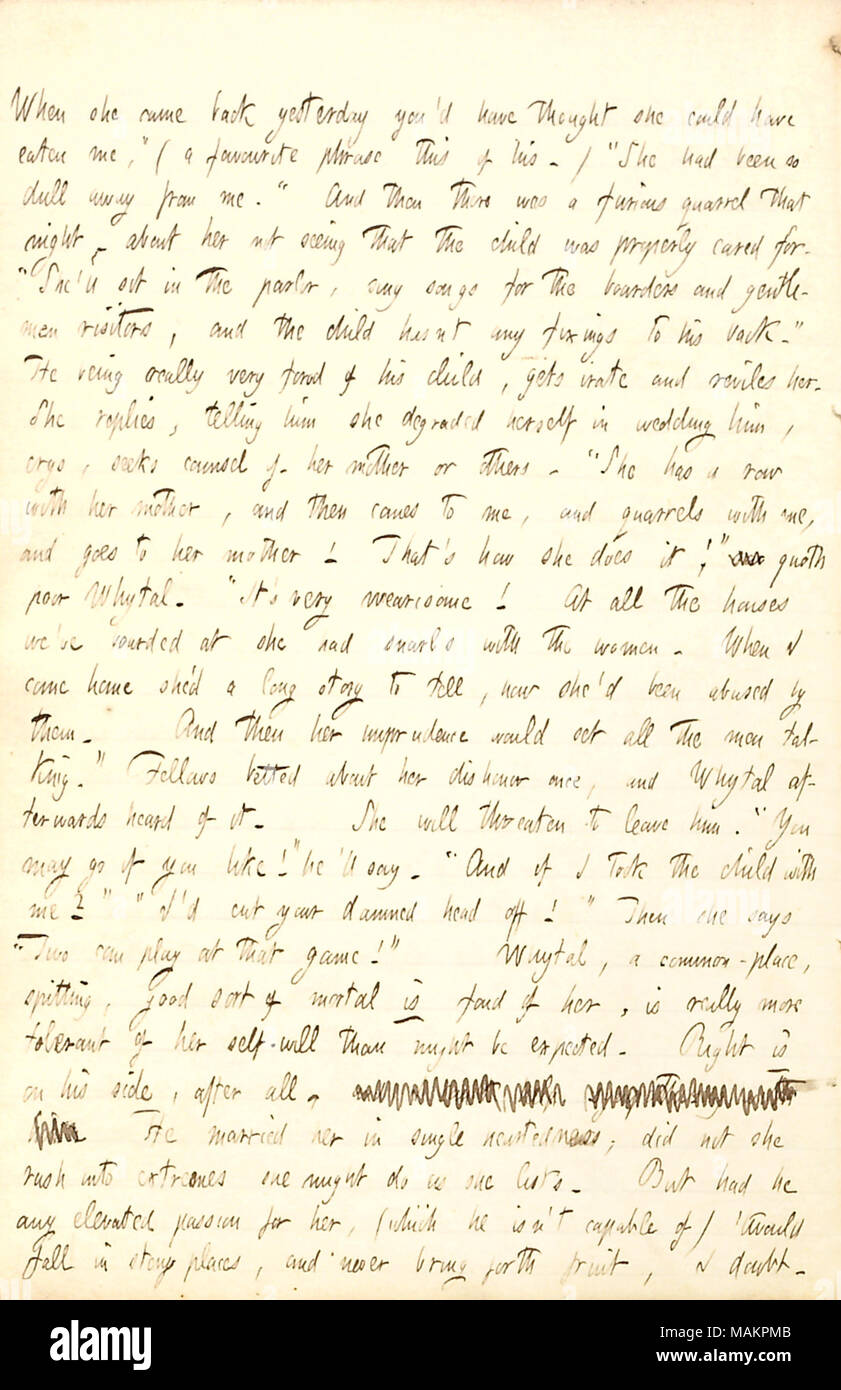 When she came back yesterday you'd have thought she could have
eaten me," ( a favourite phrase this of his - ) "She had been so
dull away from me." And then there was a furious quarrel that
night, about her not seeing that the child was properly cared for.
"She'll sit in the parlor, sing songs for the boarders and gentle-
men visitors, and the child hasn't any fixings to his back -"
He being really very fond of his child, gets irate and reviles her.
She replies, telling him she degraded herself in wedding him,
crys, seeks counsel of her mother or others - "She has a row
with her mother, and then comes to me, and quarrels with me,
and goes to her mother! That's how she does it!" quoth
poor Whytal. "It's very wearisome! At all the houses
we've boarded at she had snarls with the women. When I
came home she'd a long story to tell, how she'd been abused by
them. And then her imprudence would set all the men tal-
king." Fellows betted about her dishonor once, and Whytal af-
terwards heard of it. She will threaten to leave him. "You
may go if you like!" he'll say. "And if I took the child with
me?" "I'd cut your damned head off!" Then she says
"Two can play at that game!" Whytal, a common-place,
spitting, good sort of mortal is fond of her, is really more
tolerant of her self-will than might be expected. Right is
on his side, after all.
He married her in single heartedness; did not she
rush into extremes she might do as she lists. But had he
any elevated passion for her, (which he isn't capable of) 'twould
fall in stony places, and never bring forth fruit, I doubt.
alamy
Image ID: MAKPMB
www.alamy.com